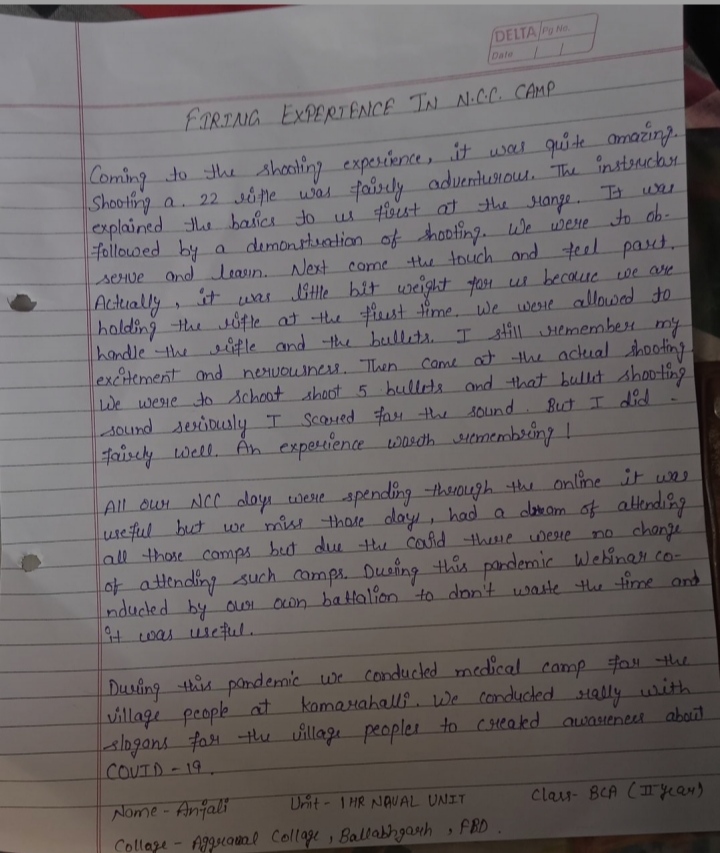 DELTA Pg No.
Date / /
FIRING EXPERIENCE IN N.C.C. CAMP
Coming to the shooting experience, it was quite amazing.
Shooting a .22 rifle was fairly adventurious. The instructor
explained the basics to us first at the range. It was
followed by a demonstration of shooting. We were to ob-
serve and learn. Next come the touch and feel part.
Actually, it was little bit weight for us because we are
holding the rifle at the first time. We were allowed to
handle the rifle and the bullets. I still remember my
excitement and nervousness. Then came at the actual shooting
We were to schoot shoot 5 bullets and that bullet shooting
sound seriously I scared for the sound. But I did -
fairly well. An experience worth remembring!
All our NCC days were spending through the online it was
useful but we miss those days, had a dream of attending
all those camps but due the covid there were no change
of attending such camps. During this pandemic Webinar co-
nducted by our own battalion to don't waste the time and
it was useful.
During this pandemic we conducted medical camp for the
village people at kamarahalli. We conducted rally with
slogans for the village peoples to created awareness about
COVID-19.
Name - Anjali Unit - 1 HR NAVAL UNIT Class - BCA (II year)
Collage - Aggrawal Collage, Ballabhgarh, FBD.